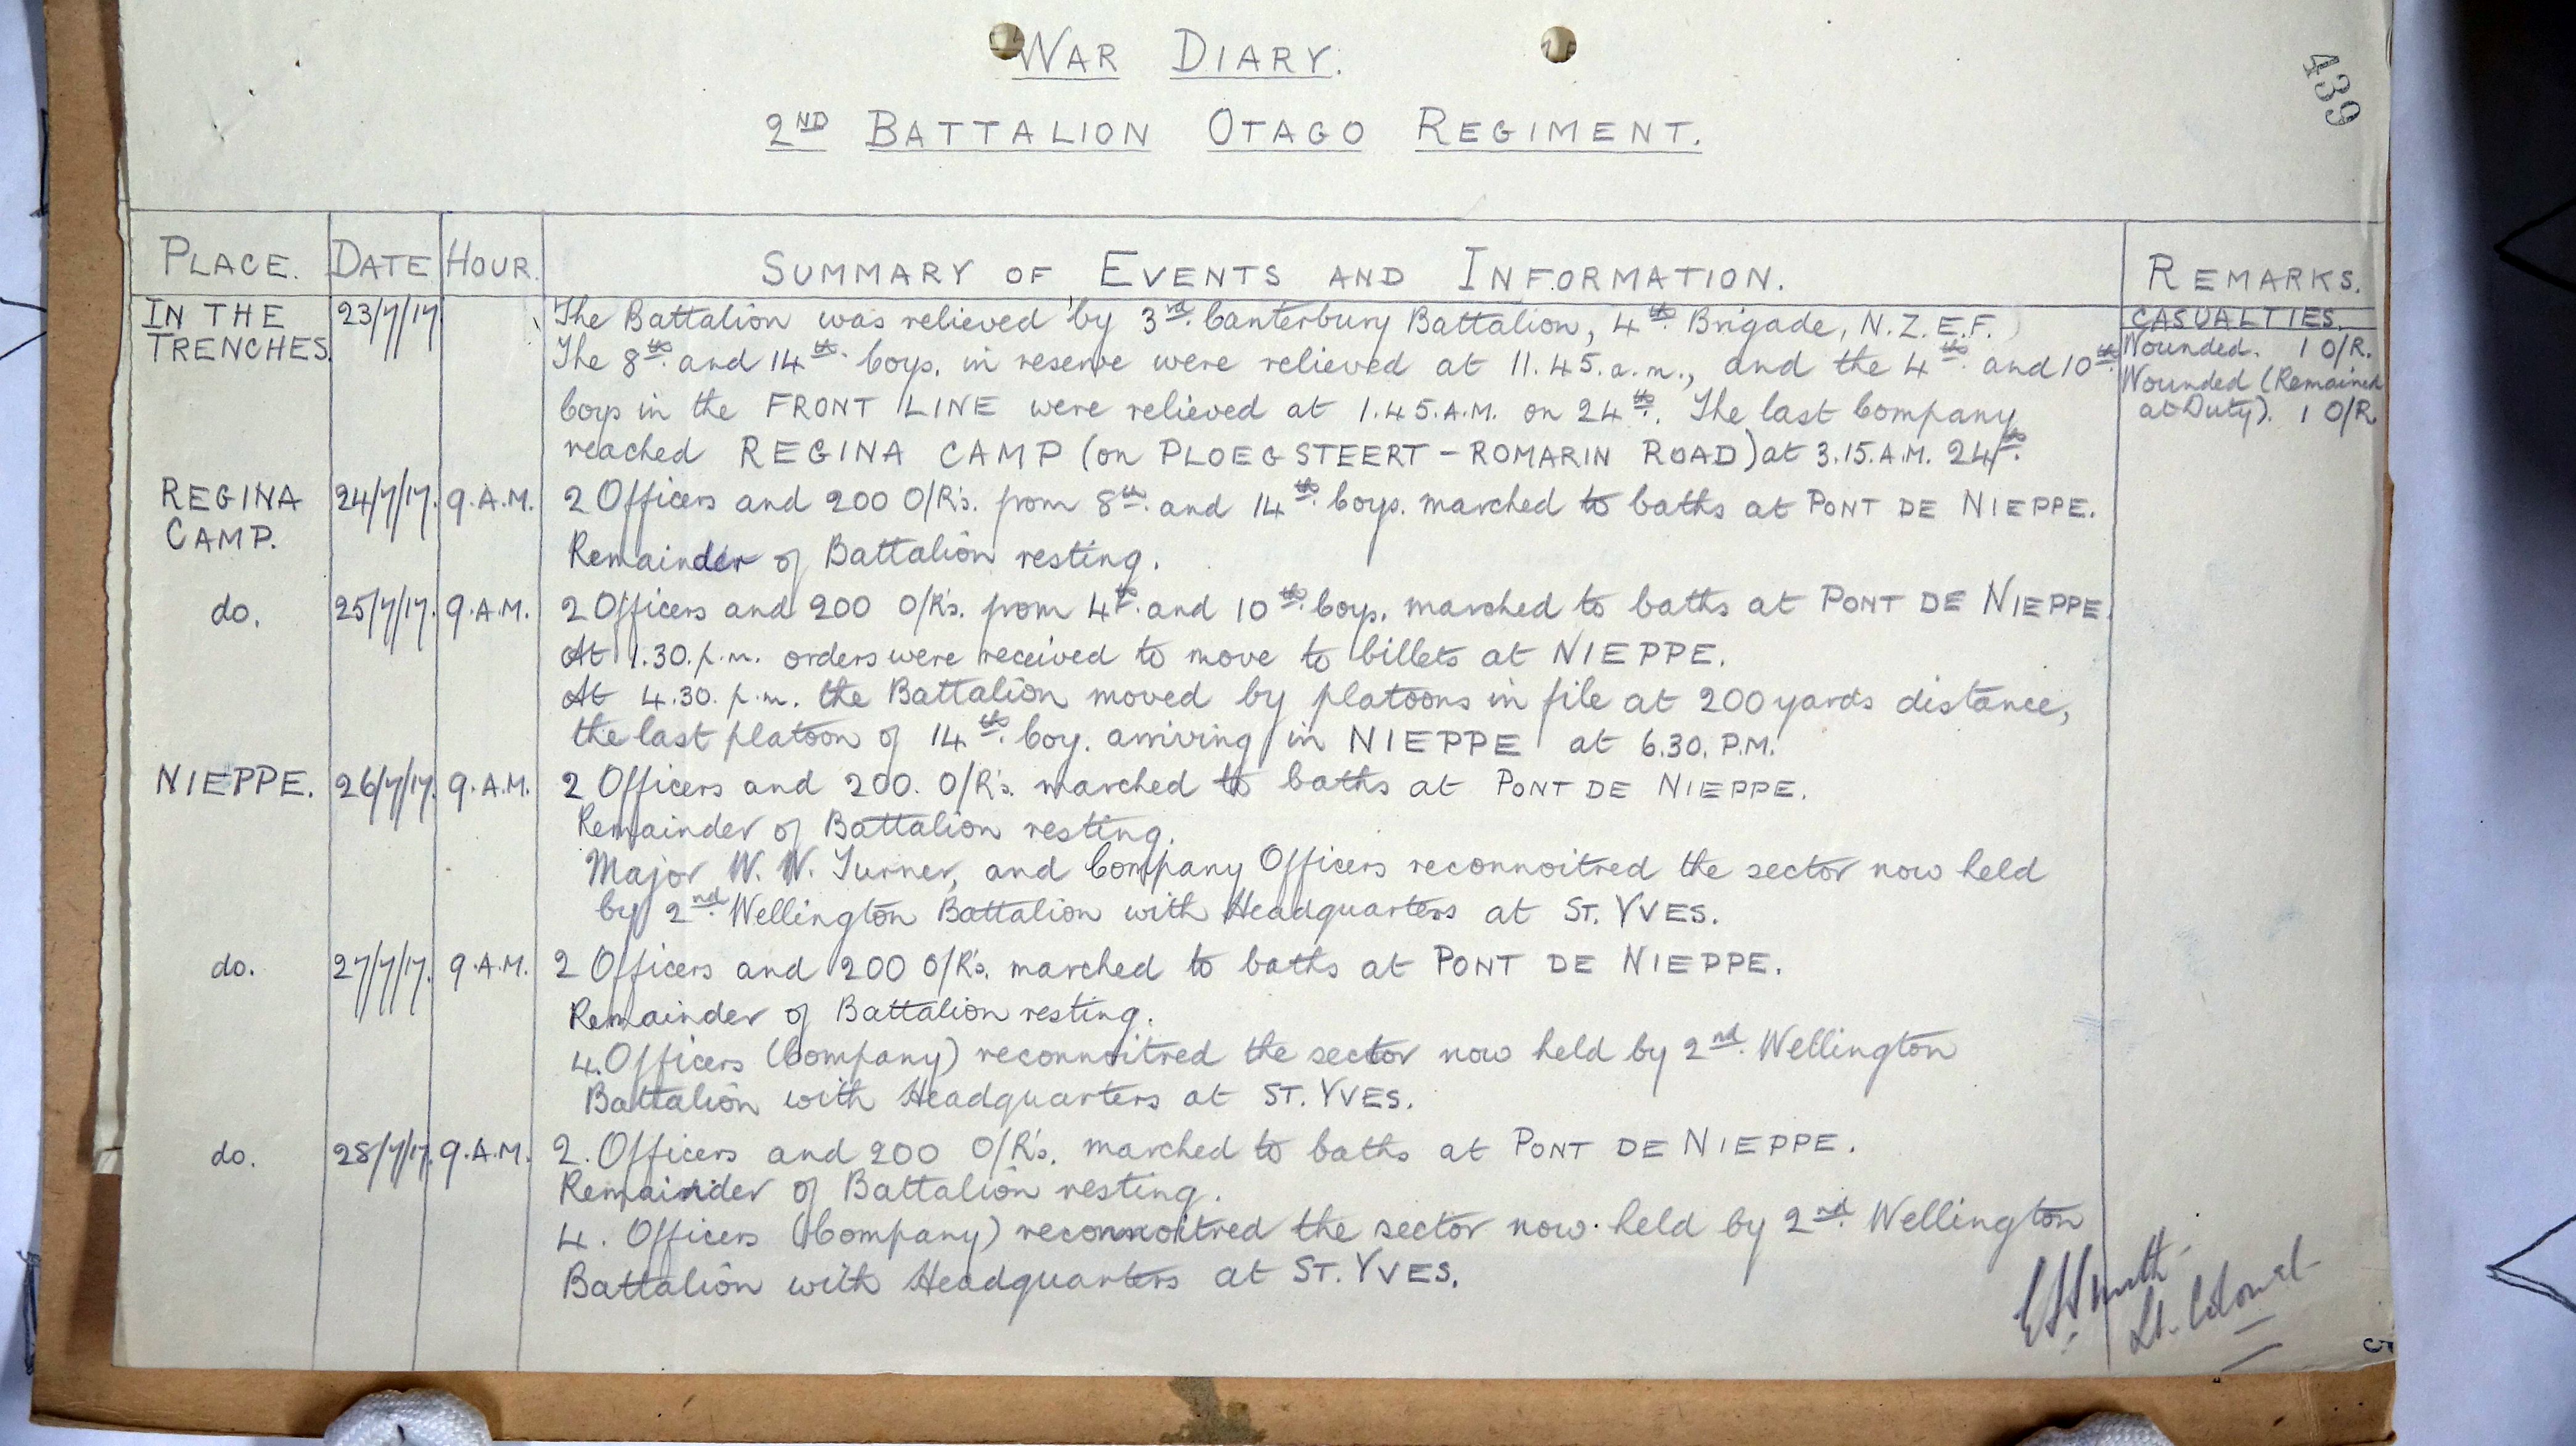 439
WAR DIARY.
2ND BATTALION OTAGO REGIMENT.
PLACE. DATE HOUR. SUMMARY OF EVENTS AND INFORMATION. REMARKS.
IN THE TRENCHES. 23/7/17 The Battalion was relieved by 3rd. Canterbury Battalion, 4th. Brigade, N.Z.E.F.
The 8th. and 14th. Coys. in reserve were relieved at 11.45.a.m., and the 4th. and 10th.
Coys in the FRONT LINE were relieved at 1.45.A.M. on 24th. The last Company
reached REGINA CAMP (on PLOEGSTEERT - ROMARIN ROAD) at 3.15.A.M. 24th.
CASUALTIES.
Wounded. 1 O/R.
Wounded (Remained
at Duty). 1 O/R.
REGINA CAMP. 24/7/17. 9.A.M. 2 Officers and 200 O/R's. from 8th. and 14th. Coys. marched to baths at PONT DE NIEPPE.
Remainder of Battalion resting.
do. 25/7/17. 9.A.M. 2 Officers and 200 O/R's. from 4th. and 10th. Coys. marched to baths at PONT DE NIEPPE.
At 1.30.p.m. orders were received to move to billets at NIEPPE.
At 4.30.p.m. the Battalion moved by platoons in file at 200 yards distance,
the last platoon of 14th. Coy. arriving in NIEPPE at 6.30.P.M.
NIEPPE. 26/7/17. 9.A.M. 2 Officers and 200. O/R's. marched to baths at PONT DE NIEPPE.
Remainder of Battalion resting.
Major W. W. Turner, and Company Officers reconnoitred the sector now held
by 2nd. Wellington Battalion with Headquarters at ST. YVES.
do. 27/7/17. 9.A.M. 2 Officers and 200 O/R's. marched to baths at PONT DE NIEPPE.
Remainder of Battalion resting.
4.Officers (Company) reconnoitred the sector now held by 2nd. Wellington
Battalion with Headquarters at ST. YVES.
do. 28/7/17. 9.A.M. 2. Officers and 200 O/R's. marched to baths at PONT DE NIEPPE.
Remainder of Battalion resting.
4. Officers (Company) reconnoitred the sector now held by 2nd. Wellington
Battalion with Headquarters at ST. YVES.
Smith
Lt. Colonel